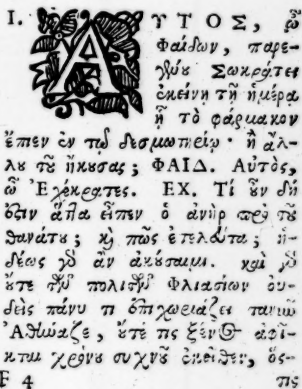 I. ΑΥΤΟΣ, ὦ
Φαίδων, παρε-
γένου Σωκράτει
ἐκείνῃ τῇ ἡμέρᾳ
ᾗ τὸ φάρμακον
ἔπιεν ἐν τῷ δεσμωτηρίῳ· ἢ ἄλ-
λου του ἤκουσας; ΦΑΙΔ. Αὐτὸς,
ὦ Ἐχέκρατες. ΕΧ. Τί οὖν δή
ἐστιν ἅττα εἶπεν ὁ ἀνὴρ πρὸ τοῦ
θανάτου; καὶ πῶς ἐτελεύτα; ἡ-
δέως γὸ ἂν ἀκούσαιμι. καὶ γὸ
οὔτε τῶν πολιτῶν Φλιασίων οὐ-
δεὶς πάνυ τι ἐπιχωριάζει τανῦν
Ἀθήναζε, οὔτέ τις ξένος ἀφῖ-
κται χρόνου συχνοῦ ἐκεῖθεν, ὅς-
F 4 τις